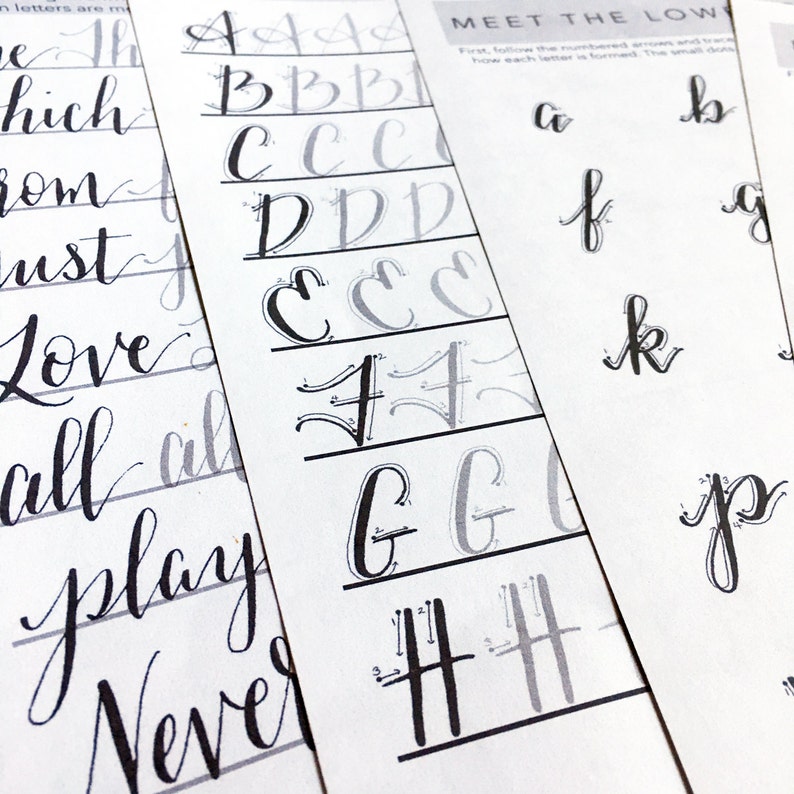 n letters are m
The Th
hich
rom f
ust
Love
all all
play
Never
A A A A
B B B B
C C C C
D D D D
E E E
F F F
G G G
H H
MEET THE LOW
First, follow the numbered arrows and trace
how each letter is formed. The small dots
a b
f g
k
p